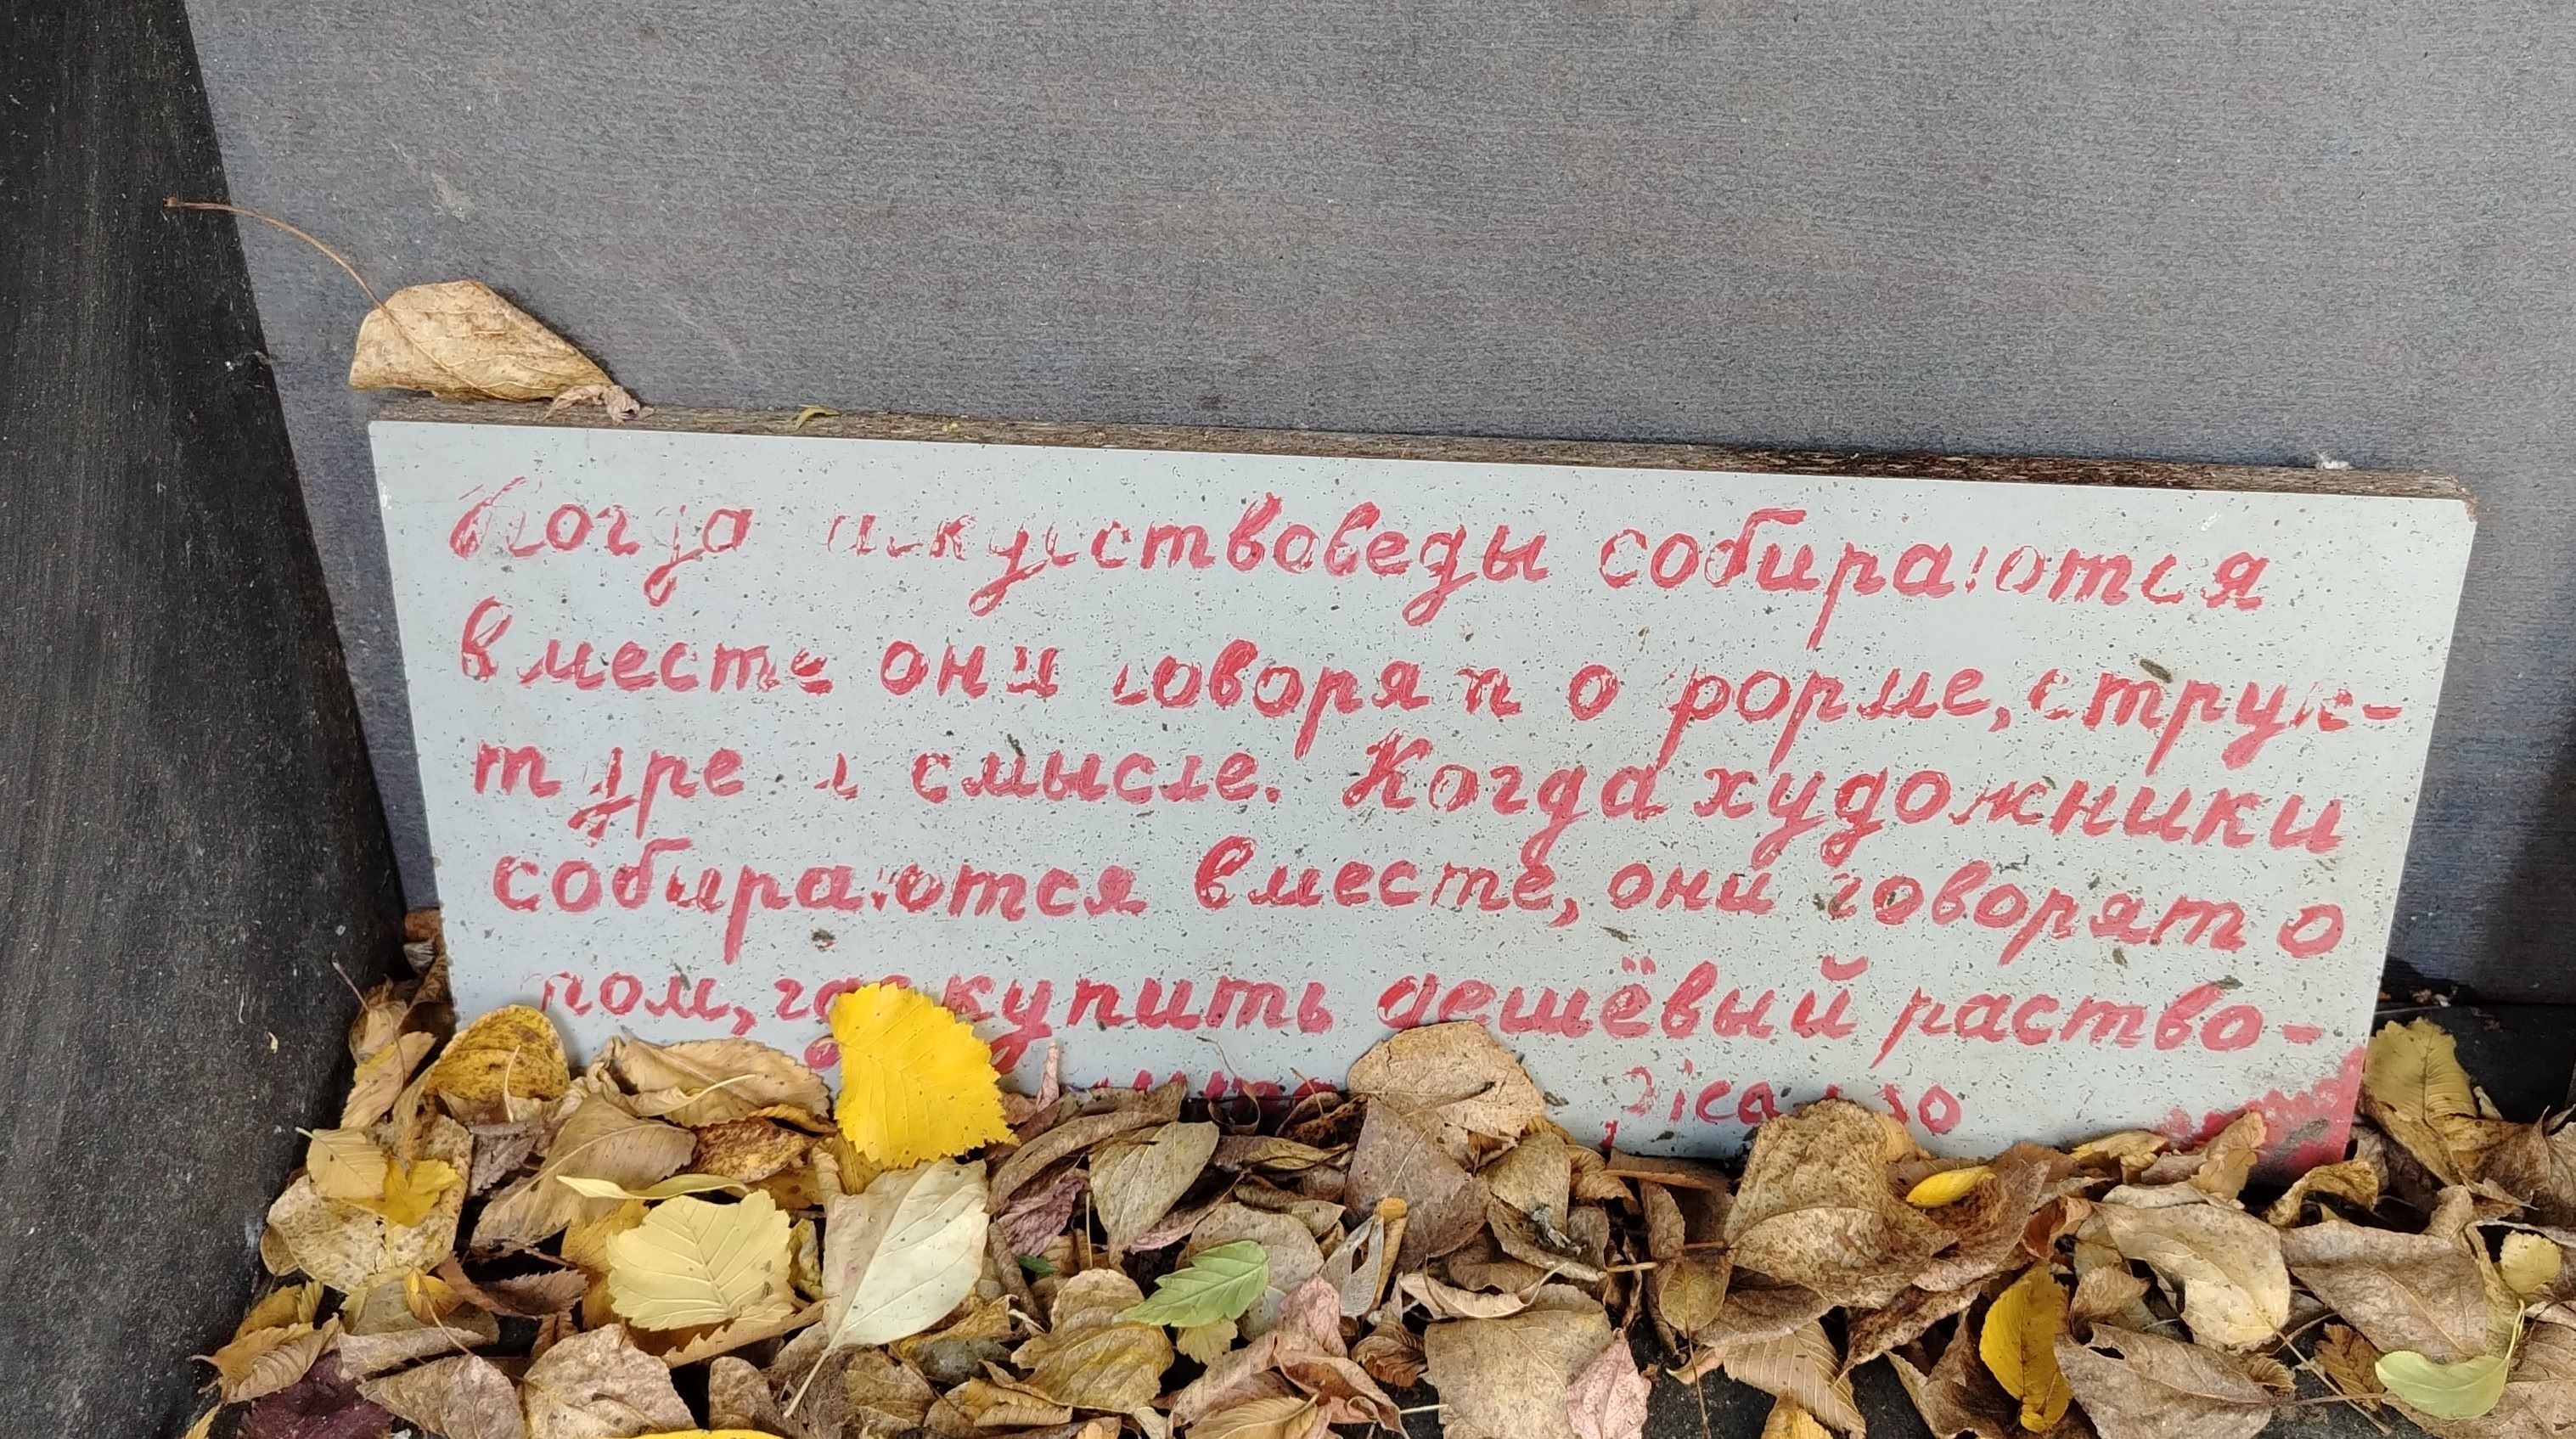 Когда искуствоведы собираются
вместе они говорят о форме, струк-
туре и смысле. Когда художники
собираются вместе, они говорят о
том, где купить дешёвый раство-
Picasso